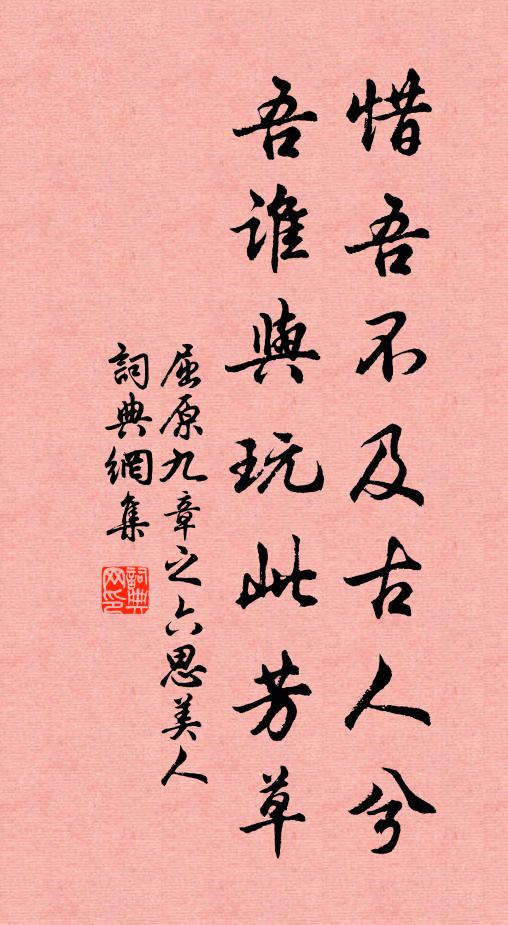 惜吾不及古人兮
吾誰與玩此芳草
屈原九章之六思美人
詞典網集
詞典网印